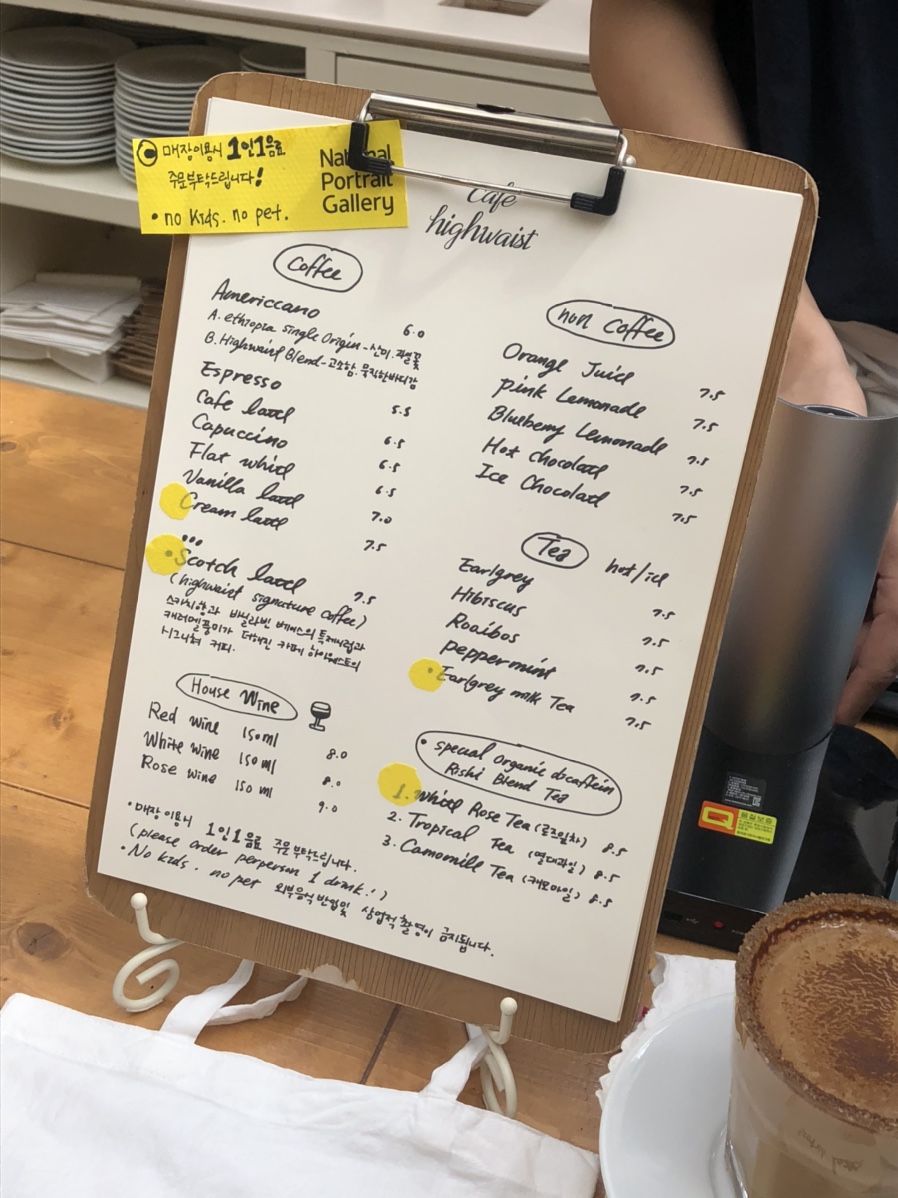 매장이용시 1인1음료
주문부탁드립니다!
• no kids. no pet.
National
Portrait
Gallery
Cafe
highwaist
Coffee
Americcano 6.0
A. ethiopia single Origin - 산미. 자몽. 꽃
B. Highwaist Blend - 고소함. 묵직한바디감
Espresso 5.5
Cafe latte 6.5
Capuccino 6.5
Flat white 6.5
Vanilla latte 7.0
Cream latte 7.5
...
• Scotch latte 7.5
(highwaist signature coffee)
스카치향과 바닐라빈 베이스의 특제시럽과
캐러멜풍미가 더해진 카페 하이웨스트의
시그니쳐 커피.
House Wine
Red wine 150ml 8.0
White wine 150ml 8.0
Rose wine 150ml 9.0
• 매장이용시 1인1음료 주문부탁드립니다.
(please order perperson 1 drink.!)
• No kids. no pet 외부음식반입및 상업적촬영이 금지됩니다.
non coffee
Orange Juice 7.5
pink Lemonade 7.5
Blueberry Lemonade 7.5
Hot chocolate 7.5
Ice Chocolate 7.5
Tea hot/ice
Earlgrey 7.5
Hibiscus 7.5
Rooibos 7.5
peppermint 7.5
• Earlgrey milk Tea 7.5
• special Organic decaffein
Rishi Blend Tea
1. White Rose Tea (로즈잎차) 8.5
2. Tropical Tea (열대과일) 8.5
3. Camomile Tea (캐모마일) 8.5
품질보증